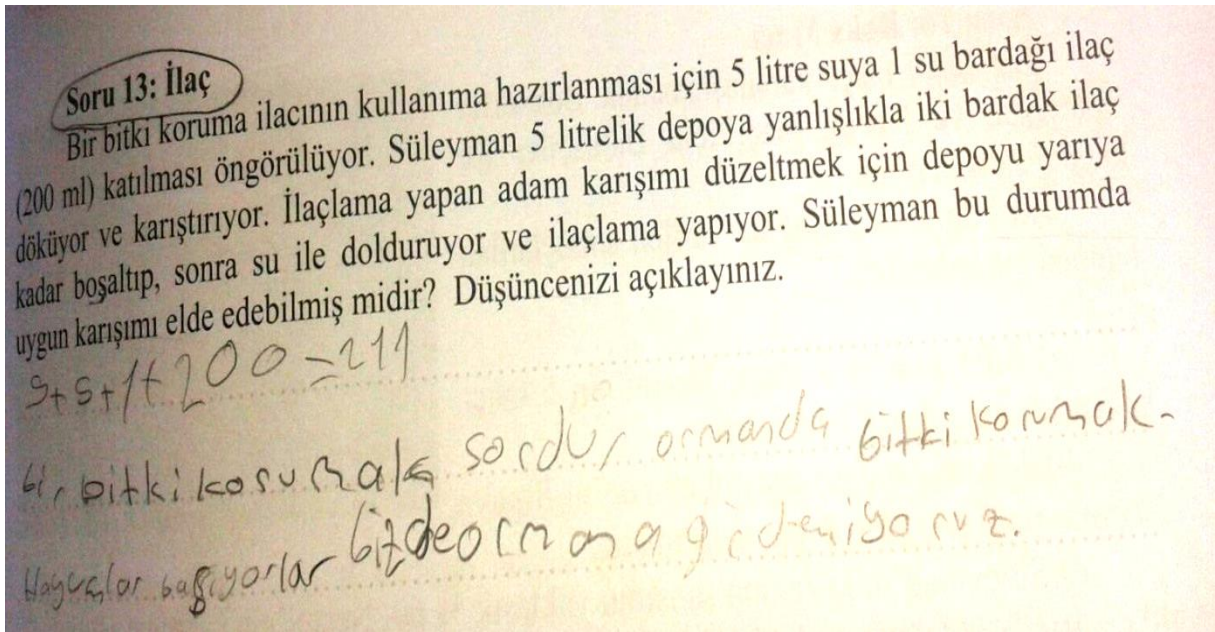 Soru 13: İlaç
Bir bitki koruma ilacının kullanıma hazırlanması için 5 litre suya 1 su bardağı ilaç
(200 ml) katılması öngörülüyor. Süleyman 5 litrelik depoya yanlışlıkla iki bardak ilaç
döküyor ve karıştırıyor. İlaçlama yapan adam karışımı düzeltmek için depoyu yarıya
kadar boşaltıp, sonra su ile dolduruyor ve ilaçlama yapıyor. Süleyman bu durumda
uygun karışımı elde edebilmiş midir? Düşüncenizi açıklayınız.
5+5+1+200=211
bir bitki korumak sordur ormanda bitki korumak.
bizde ormana gidemiyoruz.